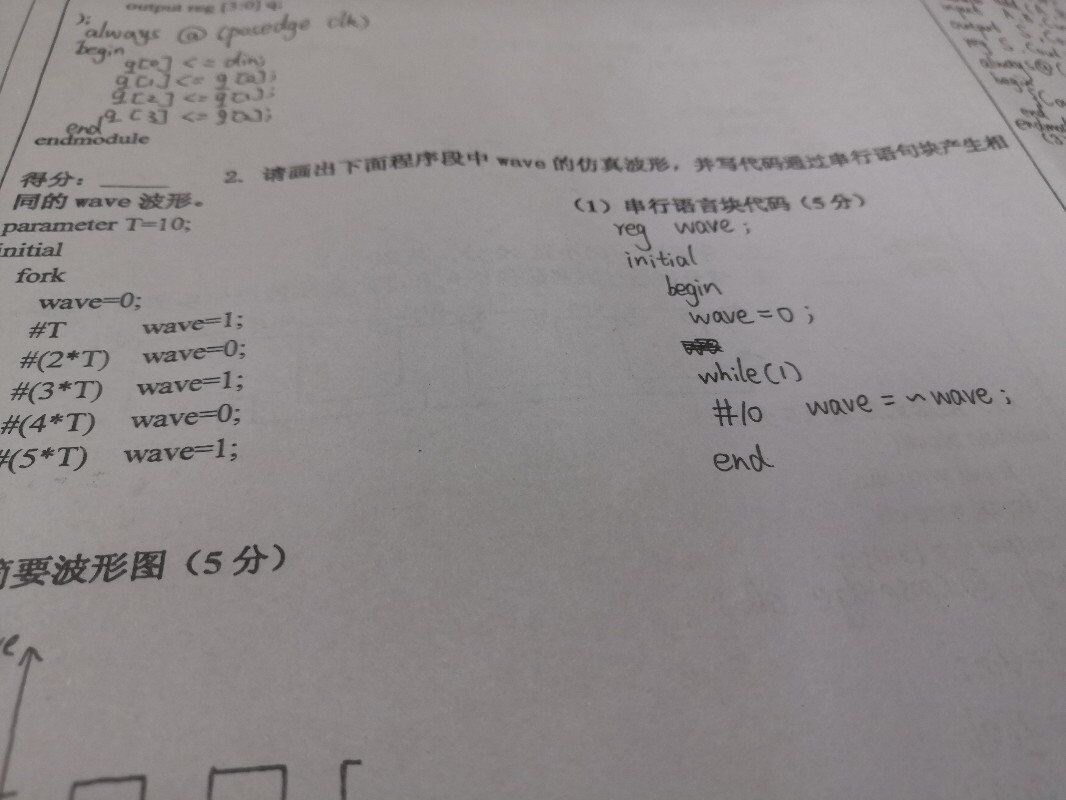 output reg [3:0] q
);
always @ (posedge clk)
begin
q[0] <= din;
q[1] <= q[0];
q[2] <= q[1];
q[3] <= q[2];
end
endmodule
得分：_____ 2. 请画出下面程序段中 wave 的仿真波形，并写代码通过串行语句块产生相
同的 wave 波形。
parameter T=10;
initial
fork
wave=0;
#T wave=1;
#(2*T) wave=0;
#(3*T) wave=1;
#(4*T) wave=0;
#(5*T) wave=1;
（1）串行语言块代码（5分）
reg wave ;
initial
begin
wave = 0 ;
while(1)
#10 wave = ~wave ;
end
简要波形图（5分）
output
reg
always@(
begin
end